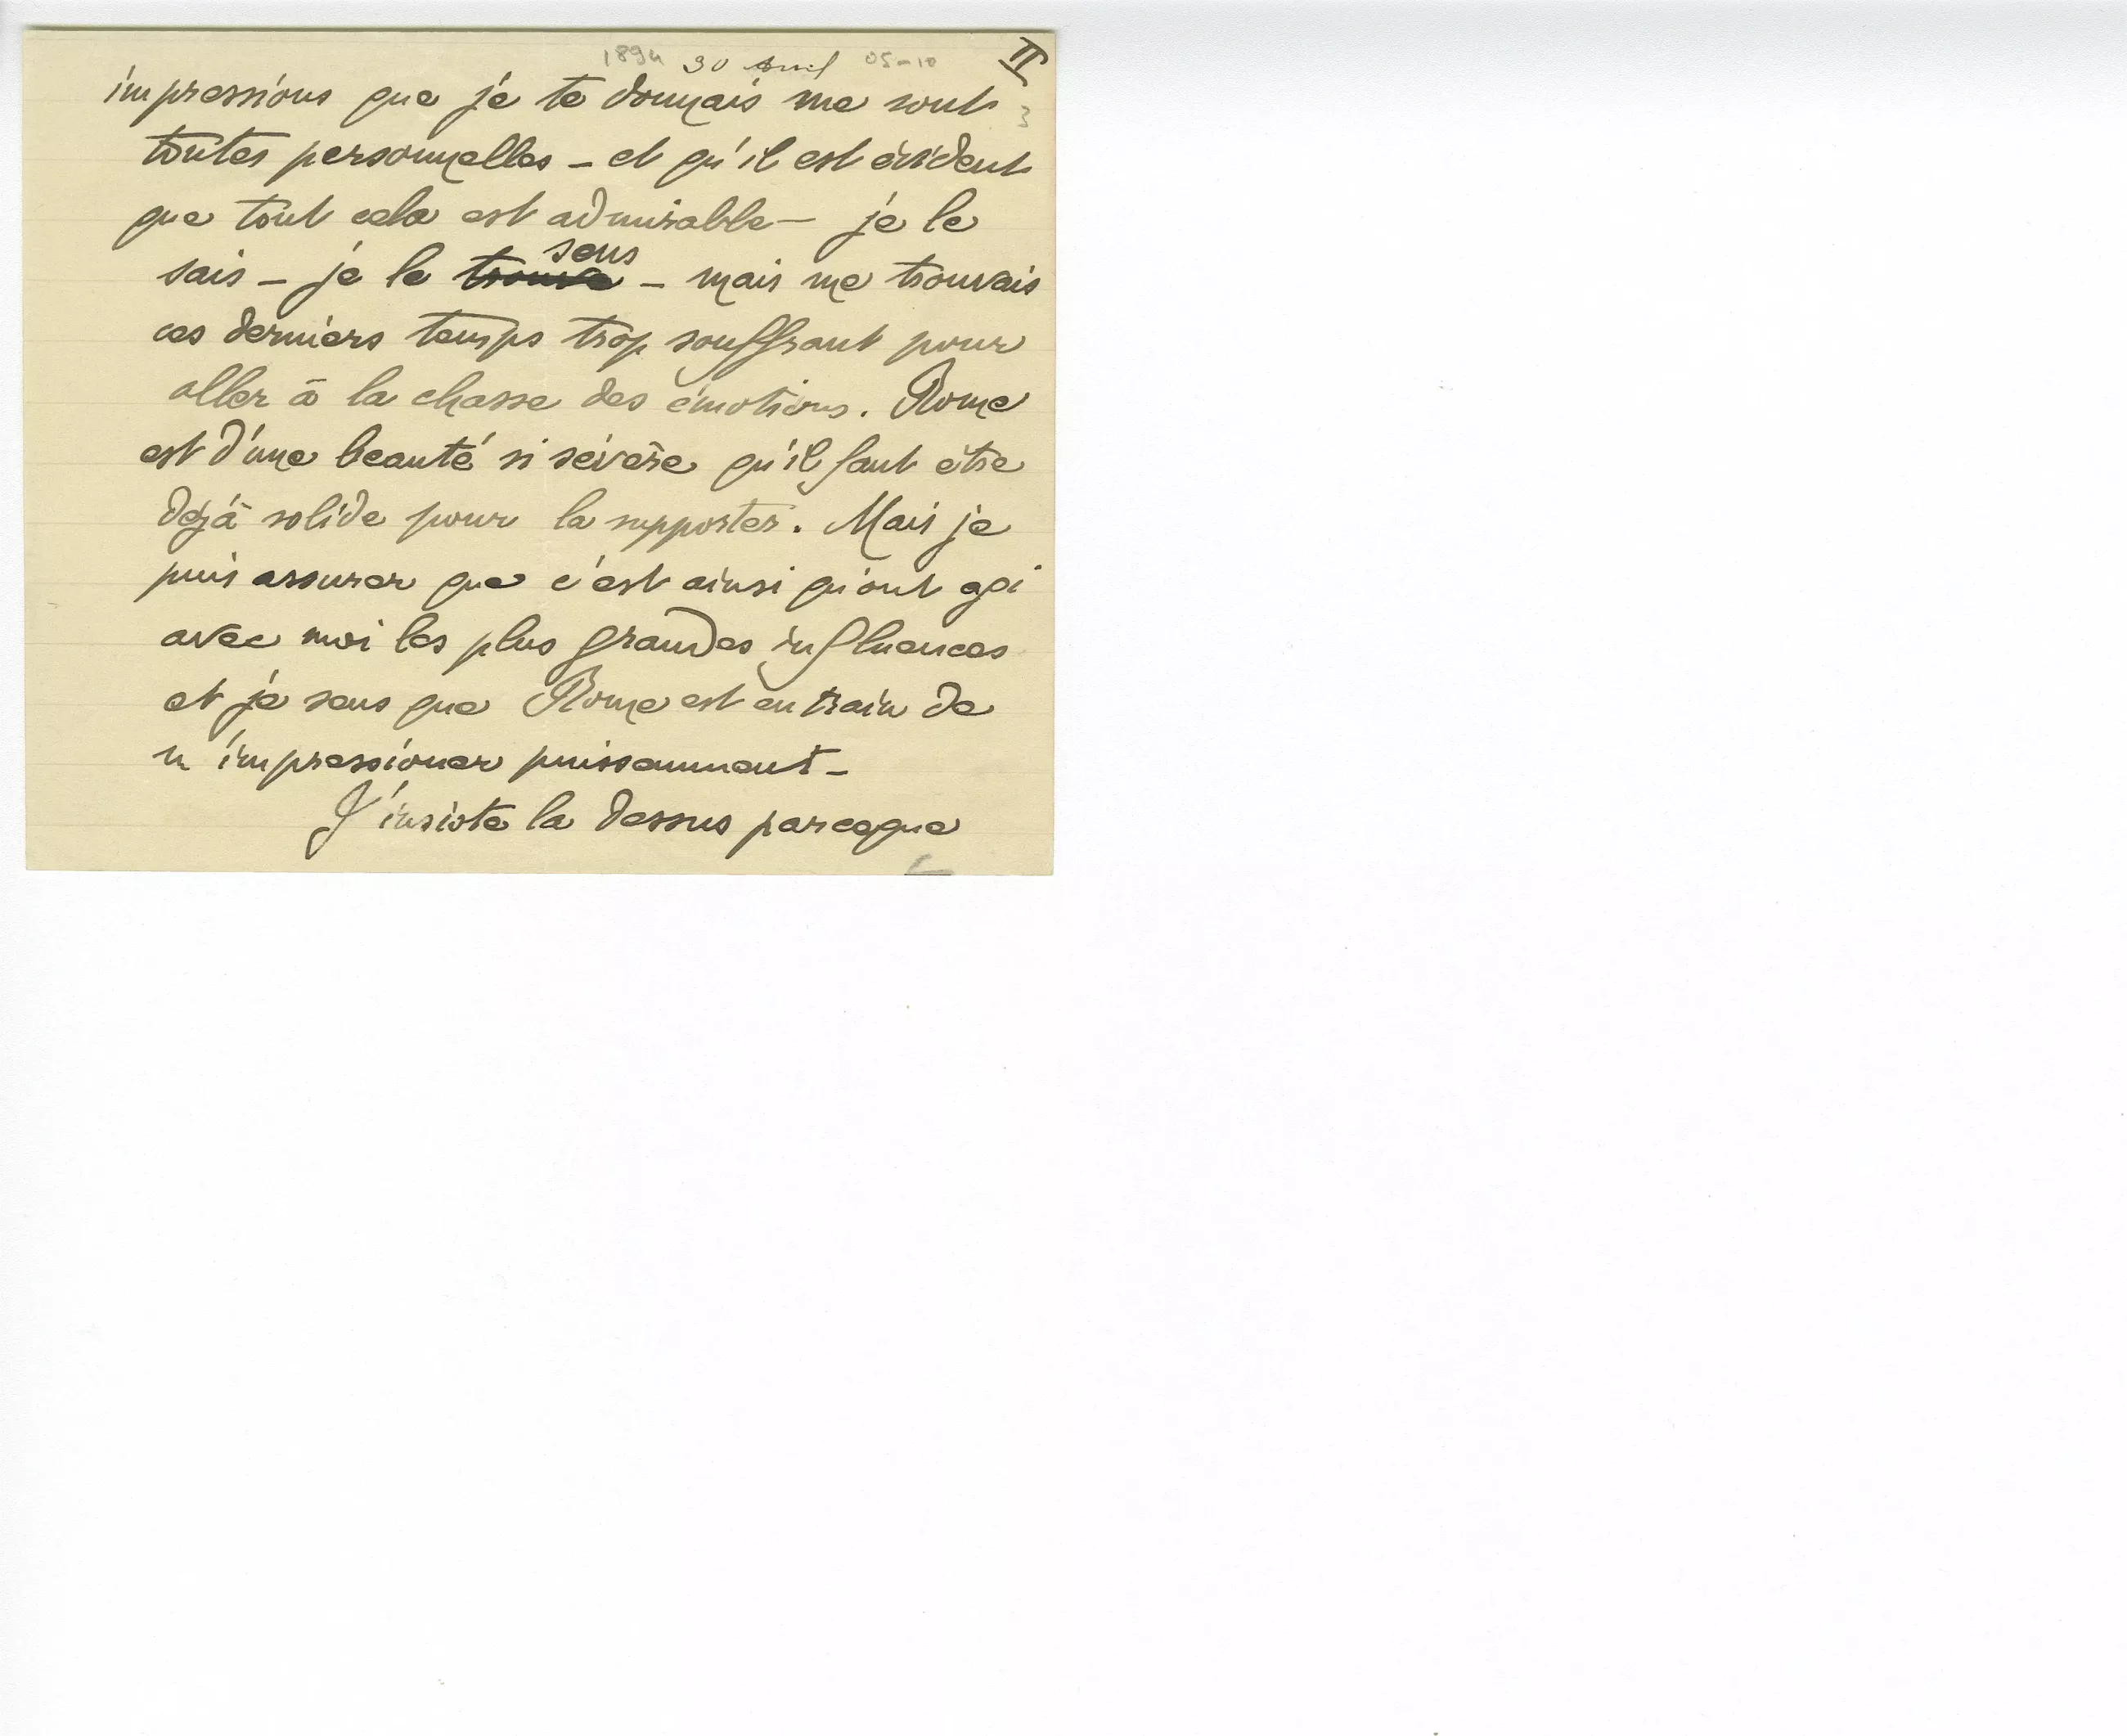 1894 30 Avril 05-10 II
impressions que je te donnais me sont 3
toutes personnelles – et qu'il est évident
que tout cela est admirable – je le
sens
sais – je le trouve – mais me trouvais
ces derniers temps trop souffrant pour
aller à la chasse des émotions. Rome
est d'une beauté si sévère qu'il faut être
déjà solide pour la supporter. Mais je
puis assurer que c'est ainsi qu'ont agi
avec moi les plus grandes influences
et je sens que Rome est en train de
m'impressioner puissamment –
J'insiste la dessus parceque